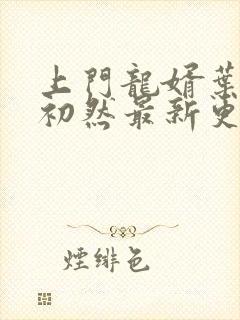 上門龍婿葉
初然最新更
煙緋色